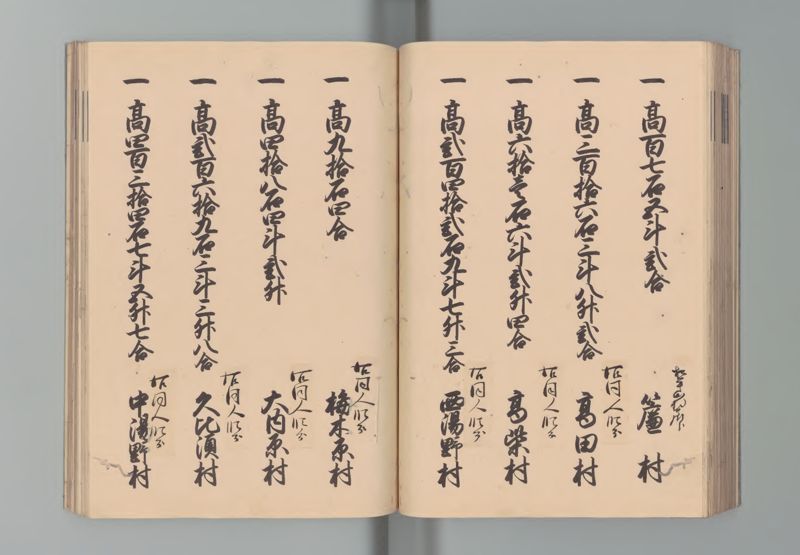 一高百七石五斗弐合
簾村
一高三百拾六石三斗八升弐合
右同人
高田村
一高六拾壱石六斗弐升四合
右同人
高柴村
一高弐百四拾弐石九斗七升三合
右同人
西湯野村
一高九拾石四合
右同人
梅木原村
一高四拾八石四斗弐升
右同人
大内原村
一高弐百六拾九石三斗三升八合
右同人
久比須村
一高四百三拾四石七斗五升七合
右同人
中湯野村